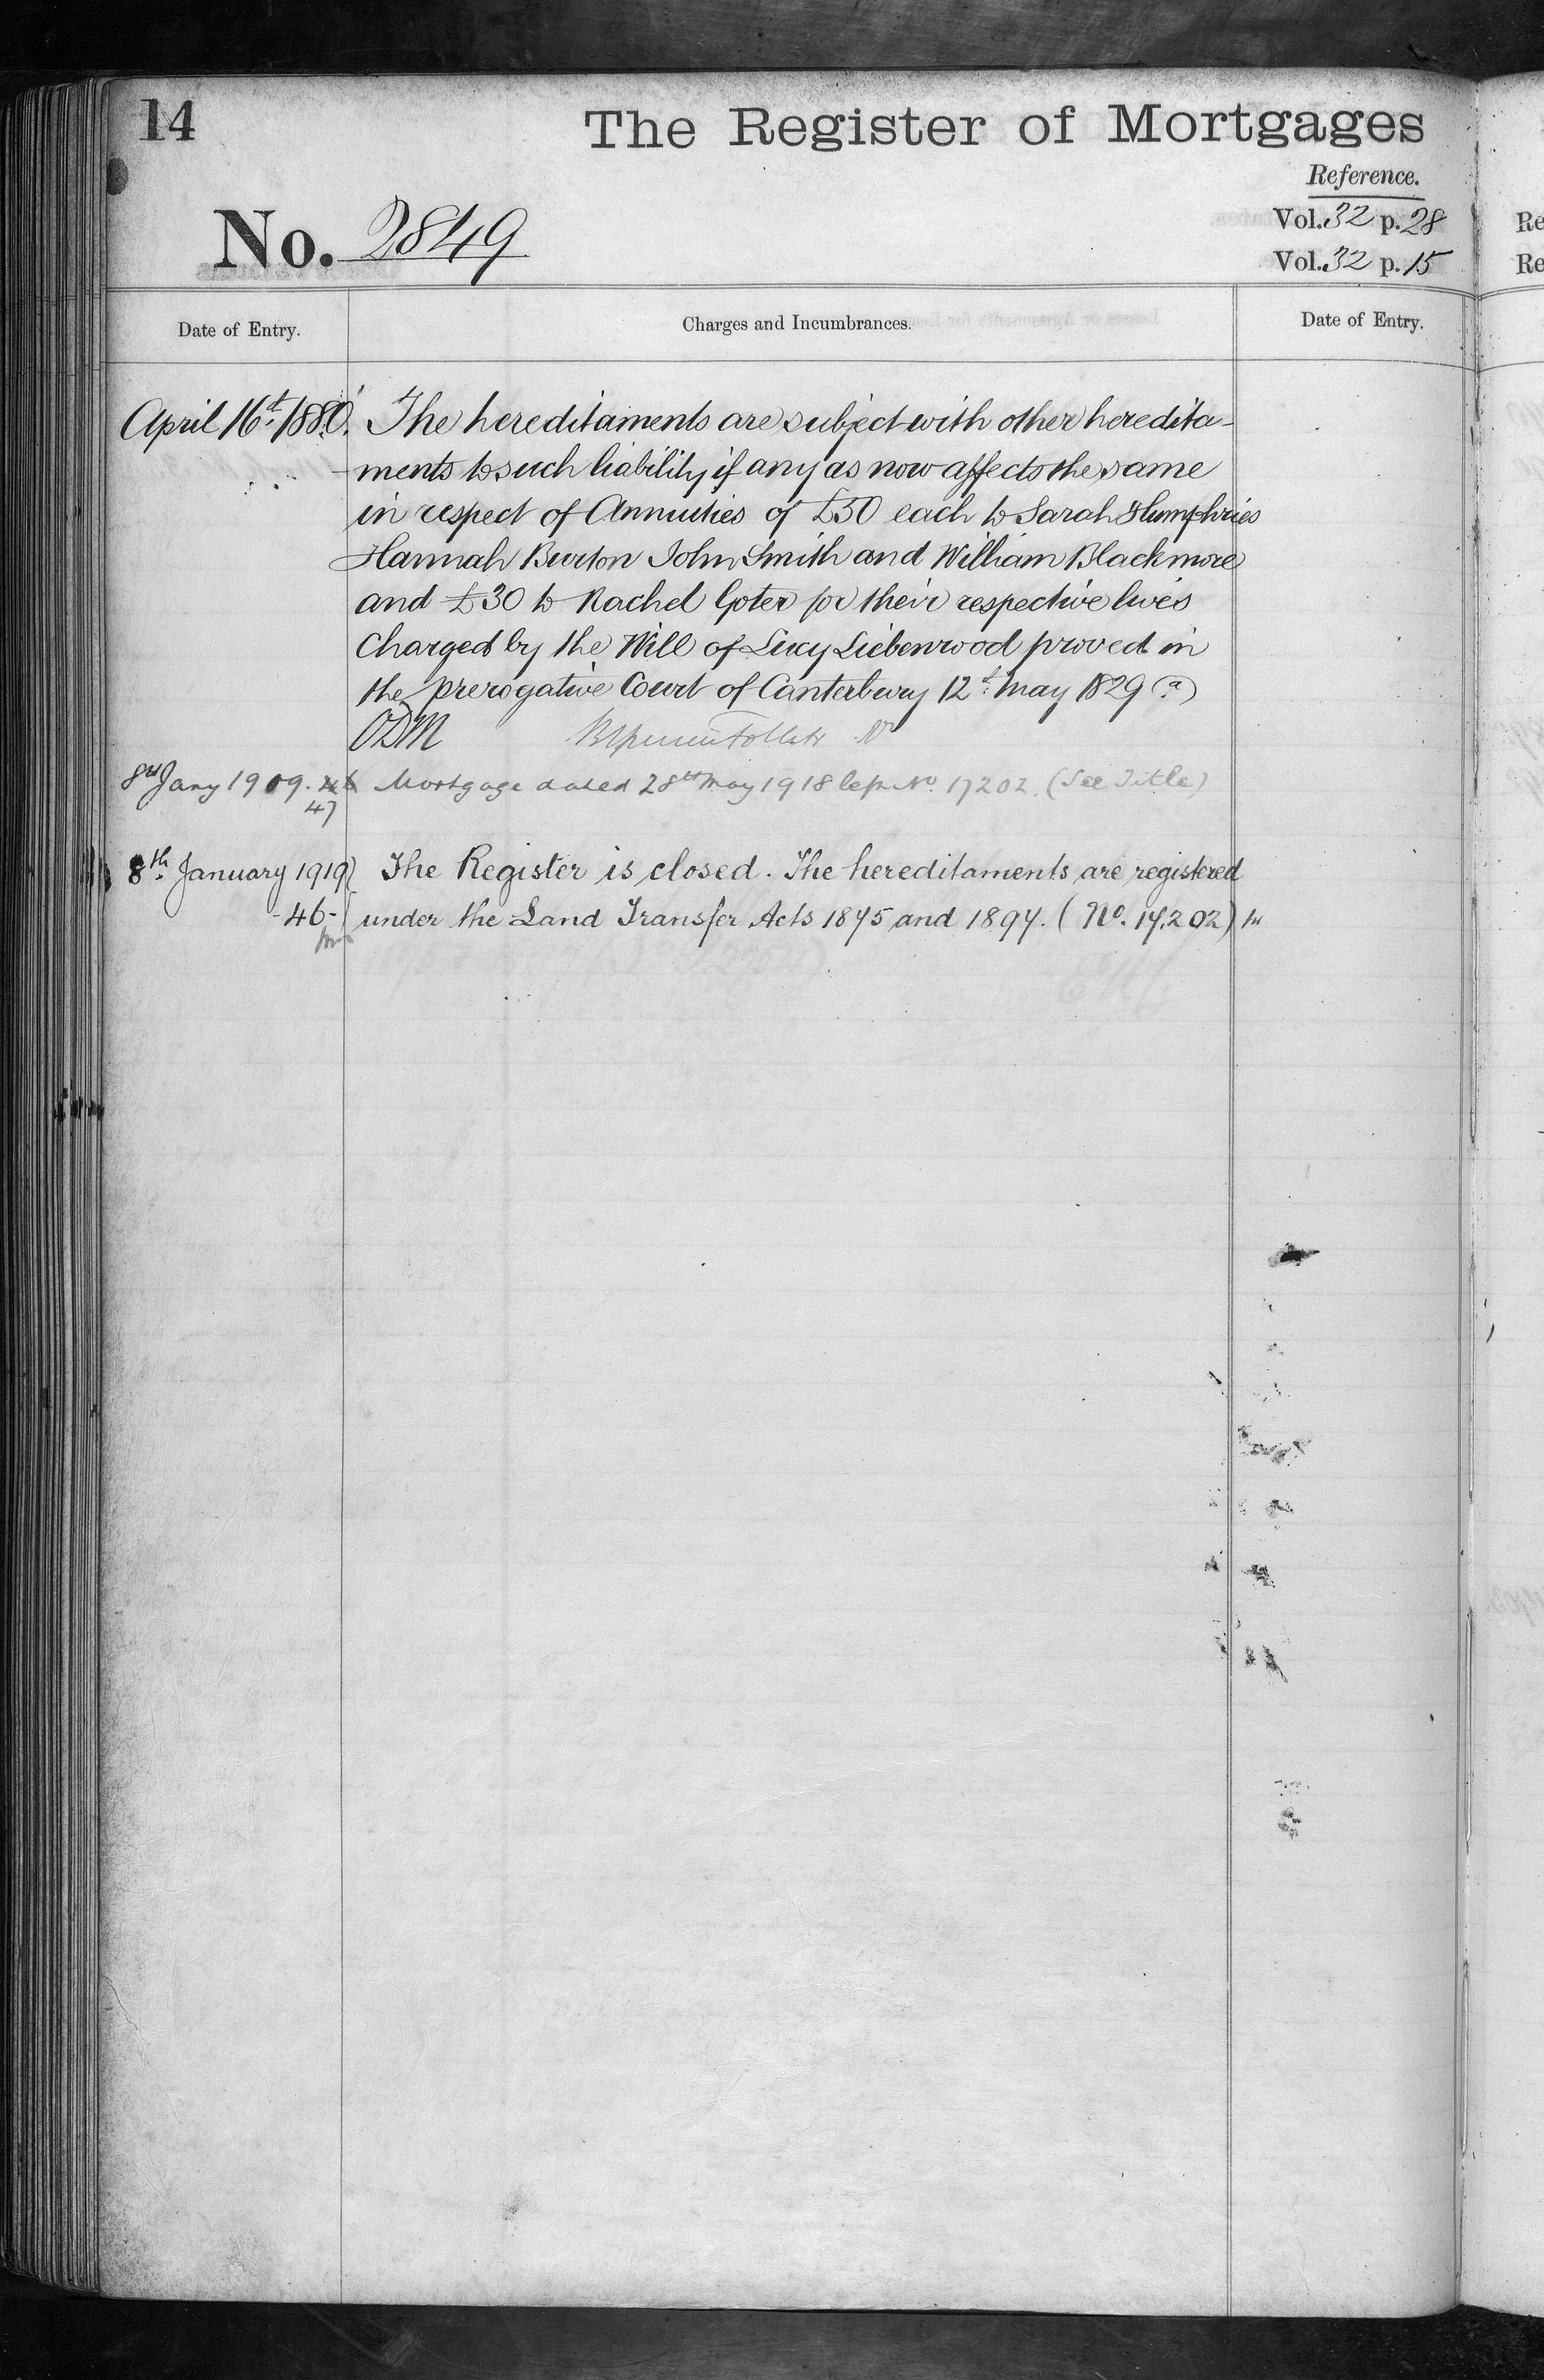 14
The Register of Mortgages
Reference.
No. 2849
Vol. 32 p. 28
Vol. 32 p. 15
Re
Re
Date of Entry.
Charges and Incumbrances.
Date of Entry.
April 16t. 1880. The hereditaments are subject with other heredita-
ments to such liability if any as now affects the same
in respect of Annuities of £50 each to Sarah Humphries
Hannah Burton John Smith and William Blackmore
and £30 to Rachel Goter for their respective lives
Charged by the Will of Lucy Liebenrood proved in
the prerogative Court of Canterbury 12t. May 1829 (a)
ODM
Jany 1909. Mortgage dated 28th May 1918 No. 17202. (See Title)
47
8th. January 1919 The Register is closed. The hereditaments are registered
-46- under the Land Transfer Acts 1875 and 1897. (No. 17,202)